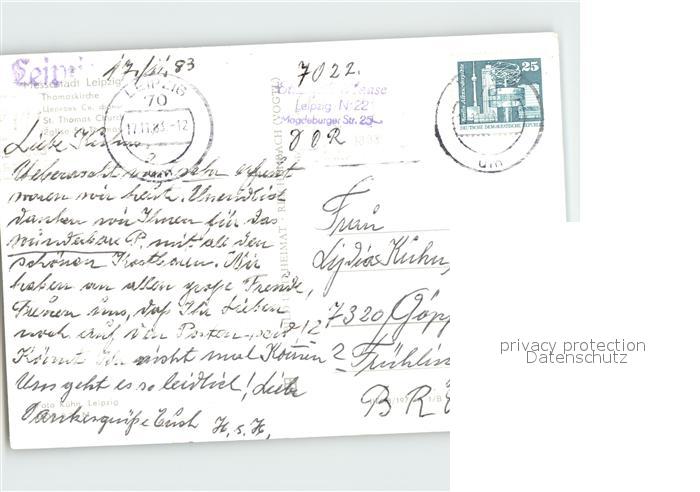 17. 11. 83
7022.
Messestadt Leipzig
Thomaskirche
St. Thomas Church
LEIPZIG
70
17.11.83-12
Leipzig N 22
Magdeburger Str. 25
DDR
25
DEUTSCHE DEMOKRATISCHE REPUBLIK
Liebe
Ueberrascht u. sehr erfreut
waren wir heut. Unendlich
danken wir Ihnen für das
wunderbare P. mit all den
schönen Kostbaren. Wir
haben an allen große Freude,
Freuen uns, daß Ihr Lieben
noch auf den Posten seid!
Könnt Ihr nicht mal Kommen?
Uns geht es so leidlich! Liebe
Dankesgrüße Euch H. u. H.
Foto Kühn, Leipzig
Frau
Lydia Kühn,
7320 Göpp
Frühlin
BR
privacy protection
Datenschutz